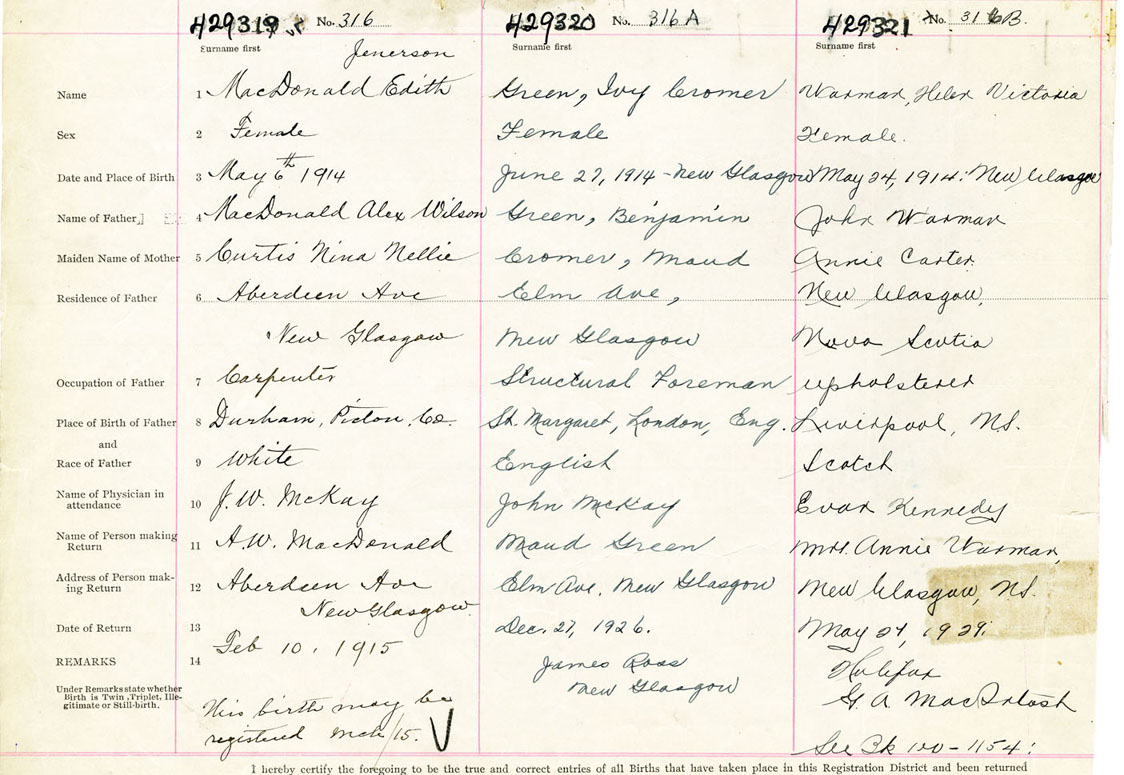 429319 No. 316 429320 No. 316 A 429321 No. 316B.
Surname first Surname first Surname first
Jenerson
Name 1 MacDonald Edith Green, Ivy Cromer Warman, Helen Victoria
Sex 2 Female Female Female.
Date and Place of Birth 3 May 6th 1914 June 27, 1914 - New Glasgow May 24, 1914: New Glasgow
Name of Father, 4 MacDonald Alex Wilson Green, Benjamin John Warman
Maiden Name of Mother 5 Curtis Nina Nellie Cromer, Maud Annie Carter
Residence of Father 6 Aberdeen Ave Elm Ave, New Glasgow,
New Glasgow New Glasgow Nova Scotia
Occupation of Father 7 Carpenter Structural Foreman upholsterer
Place of Birth of Father 8 Durham, Pictou, Co. St. Margaret, London, Eng. Liverpool, NS.
and
Race of Father 9 White English Scotch
Name of Physician in attendance 10 J. W. McKay John McKay Evan Kennedy
Name of Person making Return 11 A. W. MacDonald Maud Green Mrs. Annie Warman,
Address of Person mak-
ing Return 12 Aberdeen Ave Elm Ave. New Glasgow New Glasgow, NS.
New Glasgow
Date of Return 13 Feb 10. 1915 Dec. 27, 1926. May 27, 1929.
REMARKS 14 James Ross Halifax
New Glasgow G. A MacIntosh
Under Remarks state whether
Birth is Twin, Triplet, Ille-
gitimate or Still-birth.
This birth may be
registered Mch/15. V
See Bk 100 - 1154:
I hereby certify the foregoing to be the true and correct entries of all Births that have taken place in this Registration District and been returned